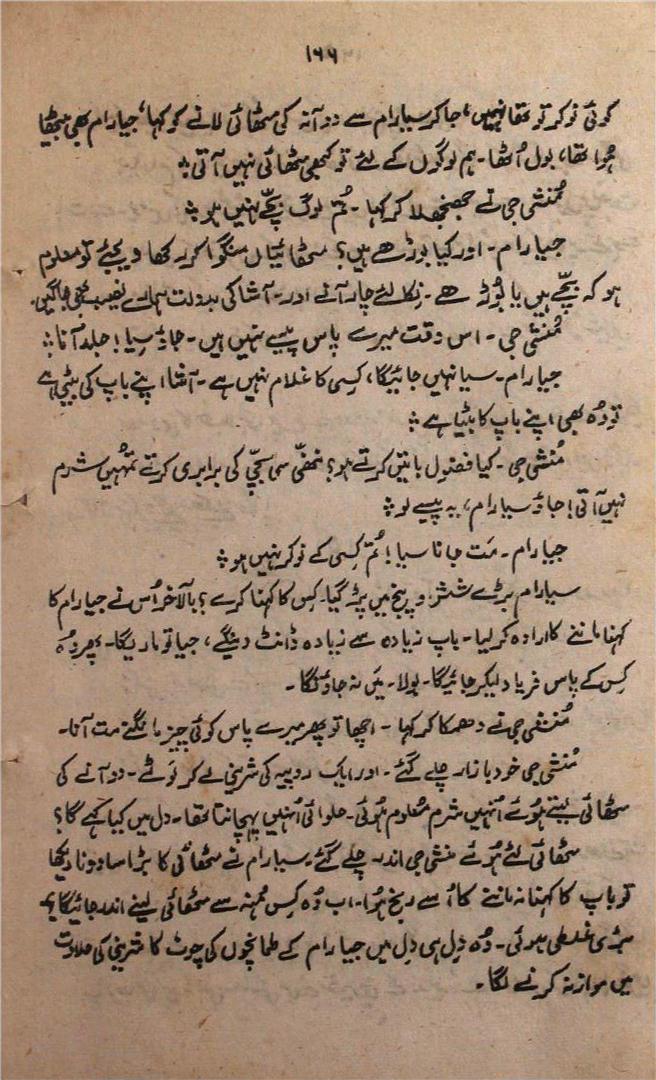 ۱۶۶
کوئی نوکر تو تھا نہیں، جا کر سیارام سے دو آنہ کی مٹھائی لانے کو کہا، جیارام بھی بیٹھا
ہُوا تھا، بول اُٹھا۔ ہم لوگوں کے لئے تو کبھی مٹھائی نہیں آتی ؞
مُنشی جی نے جھنجھلا کر کہا ۔ تُم لوگ بچّے نہیں ہو ؞
جیارام ۔ اور کیا بوڑھے ہیں؟ مٹھائیاں منگوا کر رکھ دیجئے تو معلوم
ہو کہ بچّے ہیں یا بُوڑھے۔ نِکالئے چار آنے اور۔ آشا کی بدولت ہمارے نصیب بھی جاگیں۔
مُنشی جی ۔ اس وقت میرے پاس پیسے نہیں ہیں۔ جاؤ سِیا! جلد آنا ؞
جیارام ۔ سیا نہیں جائیگا، کسی کا غلام نہیں ہے۔ آشا اپنے باپ کی بیٹی ہے
تو وُہ بھی اپنے باپ کا بیٹا ہے ؞
مُنشی جی ۔ کیا فضول باتیں کرتے ہو؟ ننھّی سی بچّی کی برابری کرتے تمہُیں شرم
نہیں آتی! جاؤ سیارام، یہ پیسے لو ؞
جیارام ۔ مَت جانا سیا! تُم کِسی کے نوکر نہیں ہو ؞
سیارام بڑے شش و پنج میں پڑ گیا۔ کِس کا کہنا کرے؟ بالآخر اُس نے جیارام کا
کہنا ماننے کا ارادہ کر لیا۔ باپ زیادہ سے زیادہ ڈانٹ دینگے، جیا تو ماریگا۔ پھر وُہ
کِس کے پاس فریاد لیکر جائیگا۔ بولا۔ میَں نہ جاؤنگا ۔
مُنشی جی نے دھمکا کر کہا ۔ اچھا تو پھر میرے پاس کوئی چیز مانگنے مت آنا۔
مُنشی جی خود بازار چلے گئے۔ اور ایک روپیہ کی شرینی لے کر لَوٹے۔ دو آنے کی
مٹھائی لیتے ہُوئے اُنہیں شرم معلوم ہُوئی۔ حلوائی اُنہیں پہچانتا تھا۔ دل میں کیا کہے گا؟
مٹھائی لئے ہُوئے منشی جی اندر چلے گئے، سیارام نے مٹھائی کا بڑا سا دونا دیکھا
تو باپ کا کہنا نہ ماننے کا اُسے رنج ہُوا۔ اب وُہ کِس مُنہ سے مٹھائی لینے اندر جائیگا؟
بڑی غلطی ہوئی۔ وُہ دِل ہی دِل میں جیارام کے طمانچوں کی چوٹ کا شرینی کی حلاوت
میں موازنہ کرنے لگا ۔